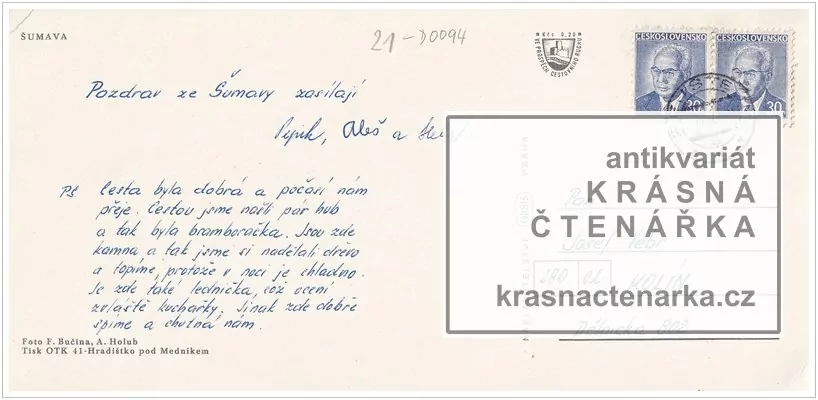 ŠUMAVA
21-D0094
Kčs 0,20
VE PROSPĚCH CESTOVNÍHO RUCHU
ČESKOSLOVENSKO ČESKOSLOVENSKO
30 30
Pozdrav ze Šumavy zasílají
Pepik, Aleš a
PS Cesta byla dobrá a počasí nám
přeje. Cestou jsme našli pár hub
a tak byla bramboračka. Jsou zde
kamna a tak jsme si nadělali dřevo
a topíme, protože v noci je chladno.
Je zde také lednička, což ocení
zvláště kuchařky. Jinak zde dobře
spíme a chutná nám.
Foto F. Bučina, A. Holub
Tisk OTK 41-Hradištko pod Medníkem
PRAHA
ORBIS
antikvariát
KRÁSNÁ
ČTENÁŘKA
krasnactenarka.cz
Josef
280 02
KOLÍN
Dělnická